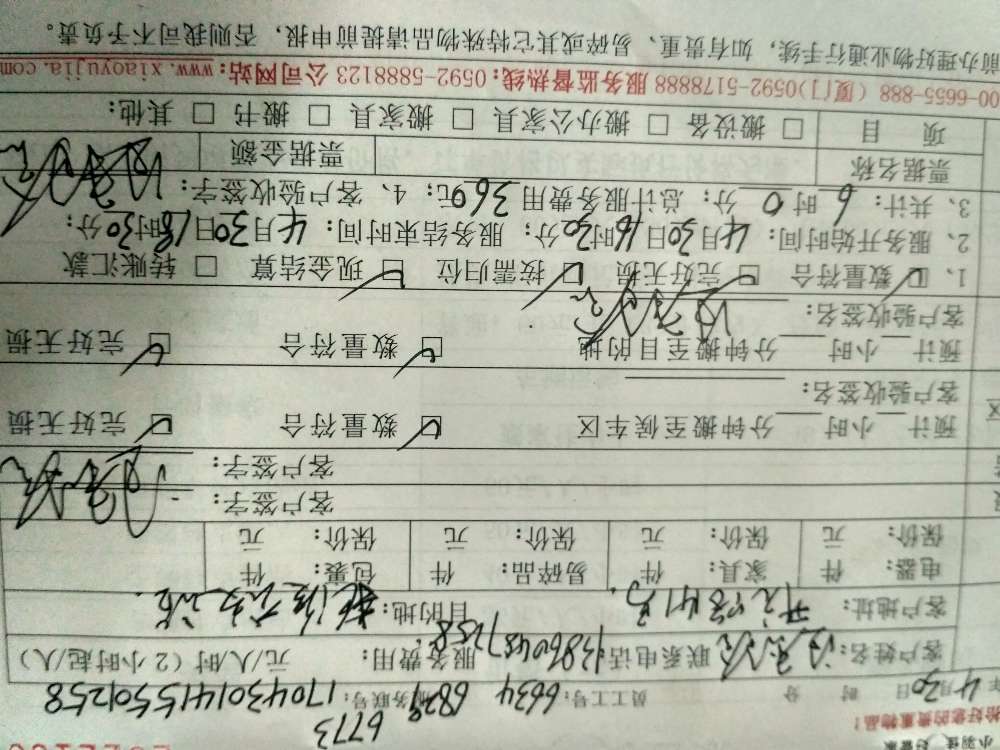 年4月30日 时 分 员工工号: 6634 6829 6773 服务联号: 1704301415501258
客户姓名: 联系电话 13860487258 服务费用: 元/人/时 (2小时起/人)
客户地址: 目的地:
电器: 件 家具: 件 易碎品: 件 包裹: 件
保价: 元 保价: 元 保价: 元 保价: 元
客户签字:
客户签字:
预计 小时 分钟搬至候车区 数量符合 完好无损
客户验收签名:
预计 小时 分钟搬至目的地 数量符合 完好无损
客户验收签名:
1、 数量符合 完好无损 按需归位 现金结算 转账汇款
2、服务开始时间: 4月30日16时30分; 服务结束时间: 4月30日18时30分;
3、共计: 6时0分; 总计服务费用360元; 4、客户验收签字:
票据名称 票据金额
项 目 搬设备 搬办公家具 搬家具 搬书 其他:
00-6655-888 (厦门)0592-5178888 服务监督热线: 0592-5888123 公司网站: www.xiaoyujia.com
前办理好物业通行手续, 如有贵重、易碎或其它特殊物品请提前申报, 否则我司不予负责。